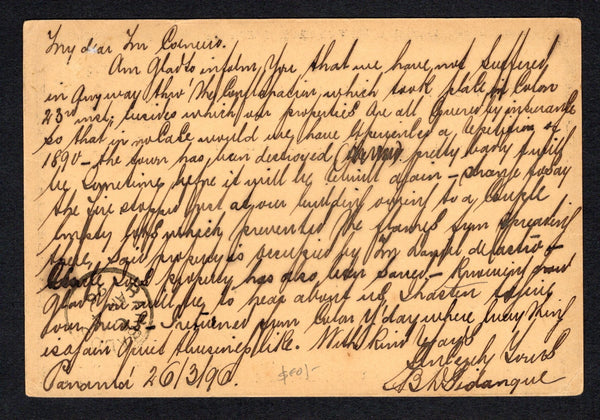 My dear Mr Corneiro.
Am Glad to inform you that we have not suffered
in anyway thro' the Conflagration which took place in Colon
23rd inst, besides which our properties are all covered by insurance
so that in no case would we have experienced a repetition of
1890 - the town has been destroyed pretty badly & will
be sometime before it will be rebuilt again - strange to say
the fire stopped just at our building owing to a couple
empty lots which prevented the flames from spreading
there, said property is occupied by
property has also been saved - Knowing how
Glad you will be to hear about us, I hasten
over - I returned from Colon today where every thing
is again quiet & businesslike. With kind regards
Sincerely Yours
Panamá 26/3/90.